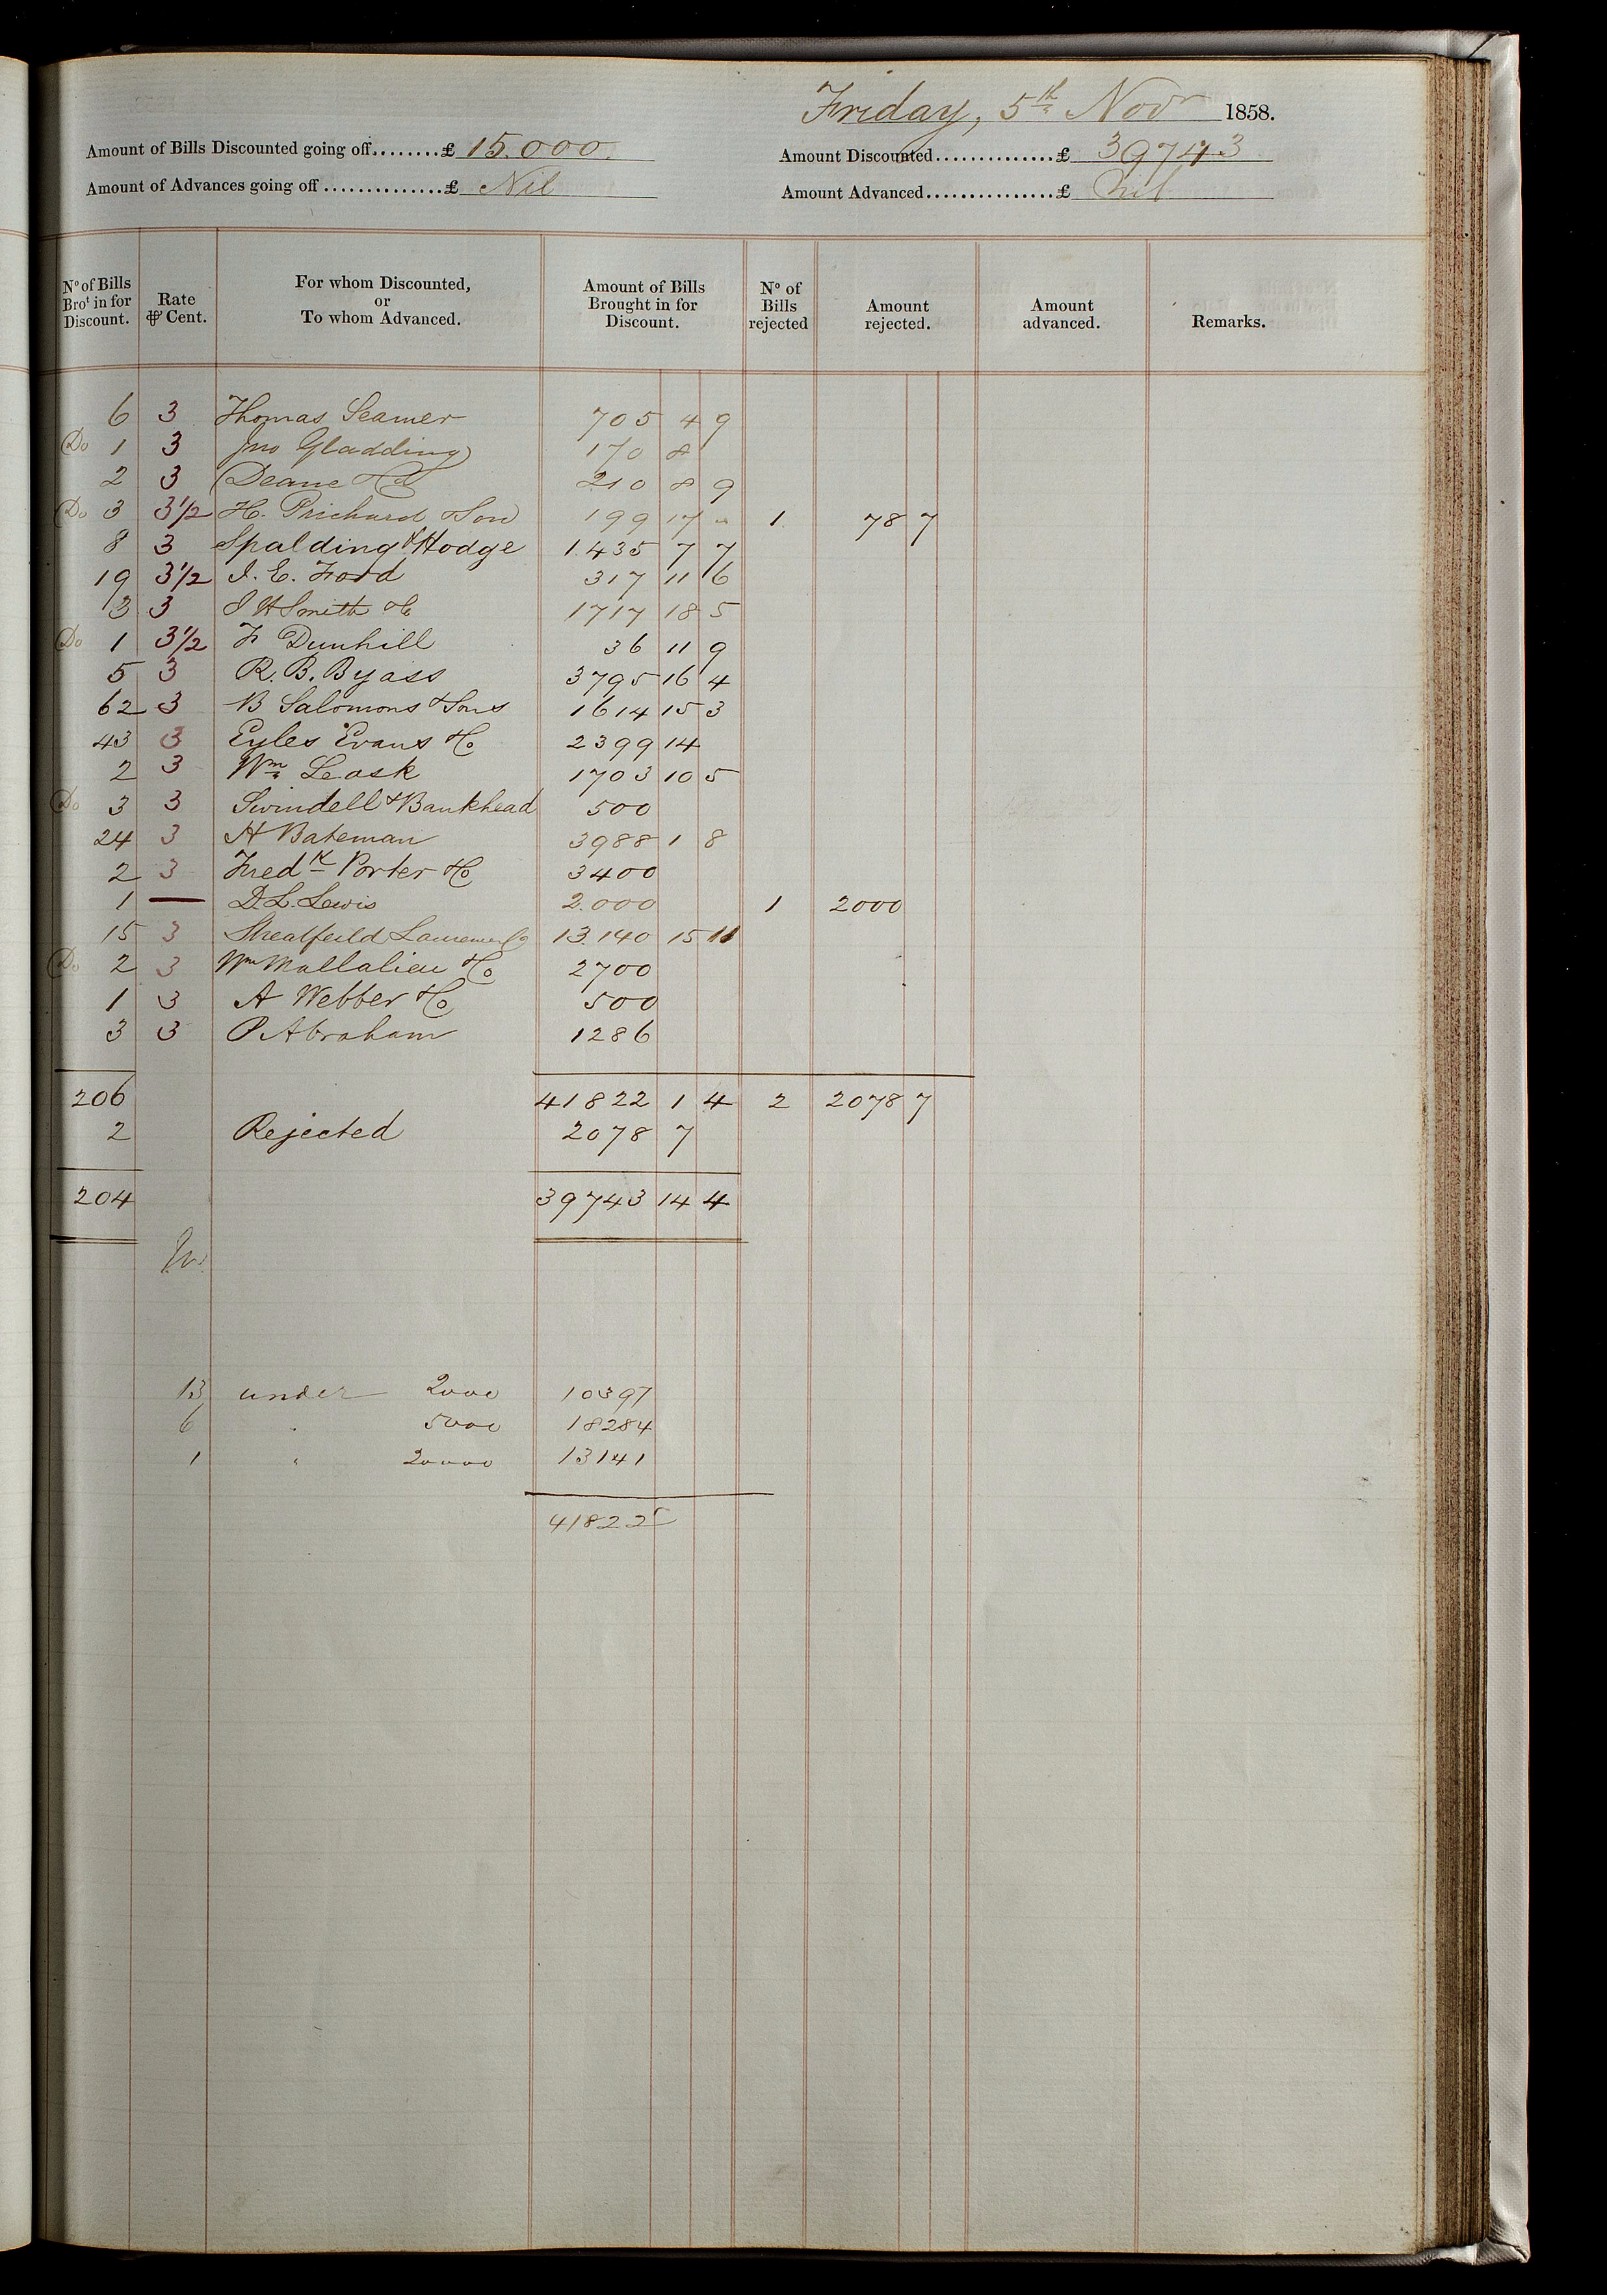 Friday, 5th Novr 1858.
Amount of Bills Discounted going off........£ 15.000. Amount Discounted..............£ 39743
Amount of Advances going off...............£ Nil Amount Advanced................£ nil
No of Bills Brot in for Discount. Rate ⅌ Cent. For whom Discounted, or To whom Advanced. Amount of Bills Brought in for Discount. No of Bills rejected Amount rejected. Amount advanced. Remarks.
6 3 Thomas Seamer 705 4 9
Do 1 3 Jno Gladding 170 8
2 3 Deane & Co 210 8 9
Do 3 3½ H. Prichard & Son 199 17 " 1 78 7
8 3 Spalding & Hodge 1435 7 7
19 3½ J. E. Ford 317 11 6
3 3 J H Smith & Co 1717 18 5
Do 1 3½ F Dunhill 36 11 9
5 3 R. B. Byass 3795 16 4
62 3 B Salomons & Sons 1614 15 3
43 3 Eyles Evans & Co 2399 14
2 3 Wm Leask 1703 10 5
Do 3 3 Swindell & Bankhead 500
24 3 H Bateman 3988 1 8
2 3 Fredk Porter & Co 3400
1 — D. L. Lewis 2.000 1 2000
15 3 Streatfeild Laurence & Co 13.140 15 11
Do 2 3 Wm Mallalieu & Co 2700
1 3 A Webber & Co 500
3 3 P Abraham 1286
206 41822 1 4 2 2078 7
2 Rejected 2078 7
204 39743 14 4
13 under 2000 10397
6 " 5000 18284
1 " 20000 13141
41822